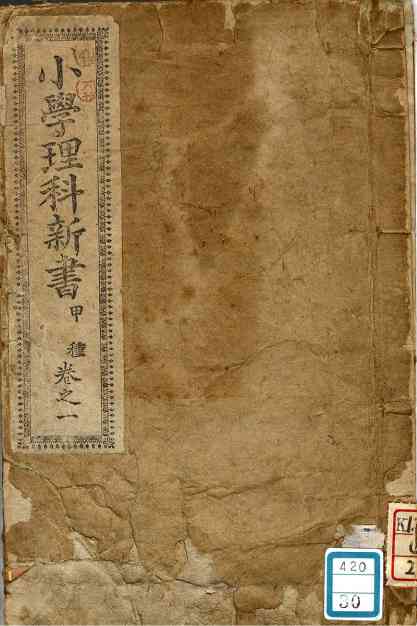 小學理科新書 甲種 卷之一
420
30
K1
2